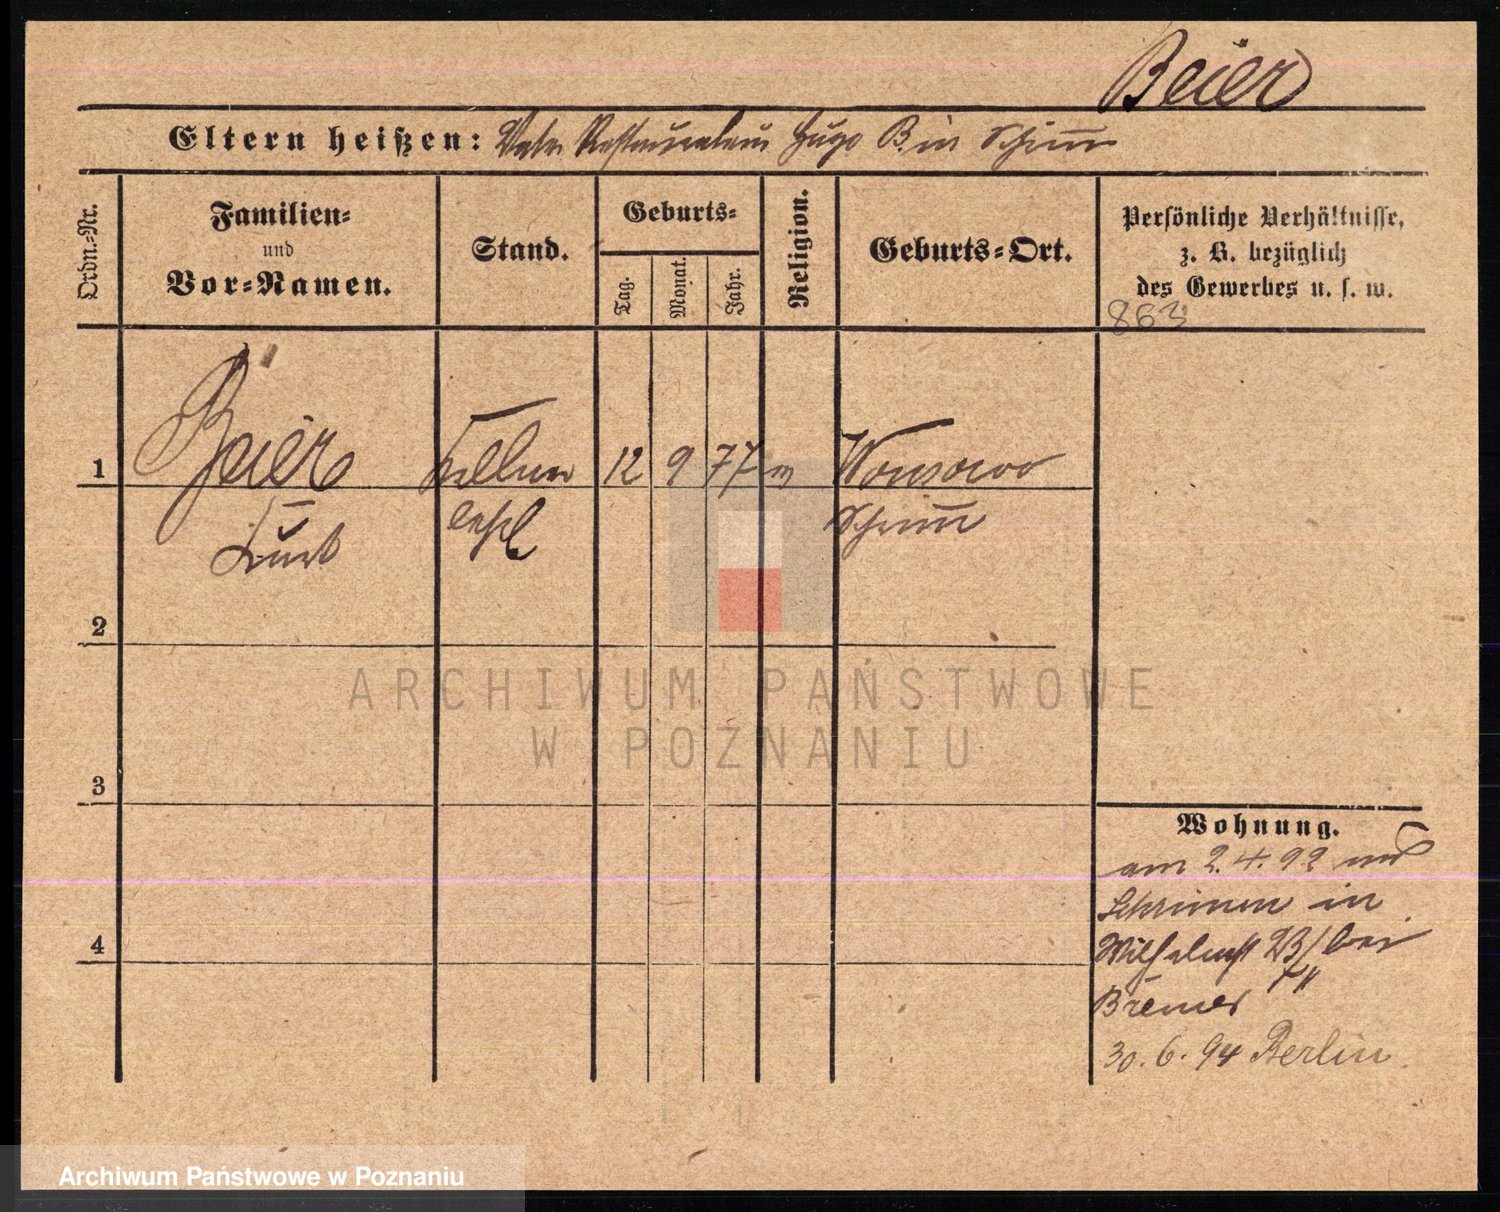 Beier
Eltern heißen: Vater Restaurateur Hugo B. in Schrimm
Ordn.-Nr.
Familien-
und
Vor-Namen.
Stand.
Geburts-
Tag.
Monat.
Jahr.
Religion.
Geburts-Ort.
Persönliche Verhältnisse,
z. B. bezüglich
des Gewerbes u. s. w.
863
1 Beier Kellner 12 9 77
Kurt Schrimm
2
3
4
Wohnung.
am 2.4.92 aus
Schrimm in
Wilhelmst 23/ bei
Bremer
30.6.94 Berlin
ARCHIWUM PAŃSTWOWE
W POZNANIU
Archiwum Państwowe w Poznaniu